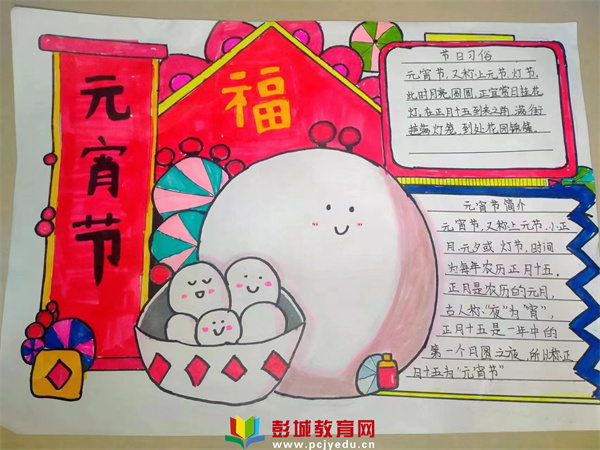 元宵节
福
节日习俗
元宵节,又称上元节,灯节,
此时月亮圆圆,正宜赏月挂花
灯,在正月十五到来之前,满街
挂满灯笼,到处花团锦簇。
元宵节简介
元宵节,又称上元节、小正
月、元夕或 灯节,时间
为每年农历正月十五,
正月是农历的元月,
古人称:"夜"为"宵",
正月十五是一年中的
第一个月圆之夜,所以称正
月十五为"元宵节"
彭城教育网
www.pcjyedu.cn